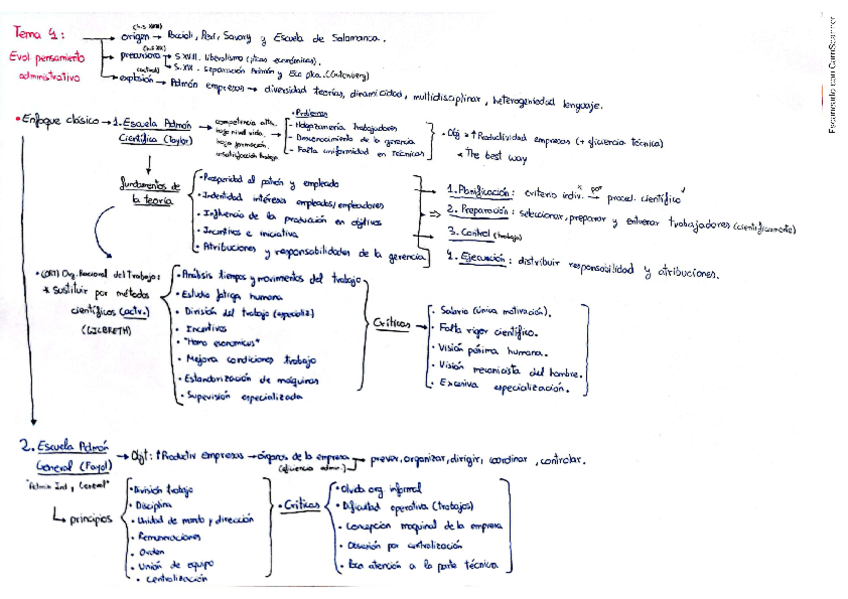 Tema 1:
Evol pensamiento
administrativo
(h.s XVIII)
origen → Paccioli, Peri, Savary y Escuela de Salamanca.
(h.s XX)
precursora → S.XVIII. liberalismo (plano económicas).
S.XIX. Separación Admón y Eco pka. (Gutenberg)
(actual)
explosión → Admón empresas → diversidad teorías, dinamicidad, multidisciplinar, heterogeniedad lenguaje.
• Enfoque clásico → 1. Escuela Admón
Científica (Taylor)
competencia alta,
bajo nivel vida,
baja formación,
insatisfacción trabajo
• Problemas
- Holgazanería trabajadores
- Desconocimiento de la gerencia
- Falta uniformidad en técnicas
• Obj → ↑ Productividad empresas (+ eficiencia técnica)
* The best way
fundamentos de
la teoría
• Prosperidad al patrón y empleado
• Indentidad intereses empleados/empleadores
• Influencia de la producción en objtivos
• Incentivos e iniciativa
• Atribuciones y responsabilidades de la gerencia
1. Planificación: criterio indiv. x → por proced. científico ✓
⇒ 2. Preparación: seleccionar, preparar y entrenar trabajadores (científicamente)
3. Control (trabajo)
4. Ejecución: distribuir responsabilidad y atribuciones.
• (ORT) Org. Racional del Trabajo:
* Sustituir por métodos
científicos (activ.)
(GILBRETH)
• Análisis tiempos y movimientos del trabajo
• Estudio fatiga humana
• División del trabajo (especializ)
• Incentivos
• "Homo economicus"
• Mejora condiciones trabajo
• Estandarización de máquinas
• Supervisión especializada
Críticas →
• Salario (única motivación).
• Falta rigor científico.
• Visión pésima humana.
• Visión mecanicista del hombre.
• Excesiva especialización.
2. Escuela Admón
General (Fayol)
→ Objt: ↑ Productiv empresas → órganos de la empresa → prever, organizar, dirigir, coordinar, controlar.
(eficiencia admin.)
"Admin Ind y General"
↳ principios
• División trabajo
• Disciplina
• Unidad de mando y dirección
• Remuneraciones
• Orden
• Unión de equipo
• Centralización
• Críticas
• Olvida org informal
• Dificultad operativa (trabajos)
• Concepción maquinal de la empresa
• Obsesión por centralización
• Esca atención a la parte técnica
Escaneado con CamScanner